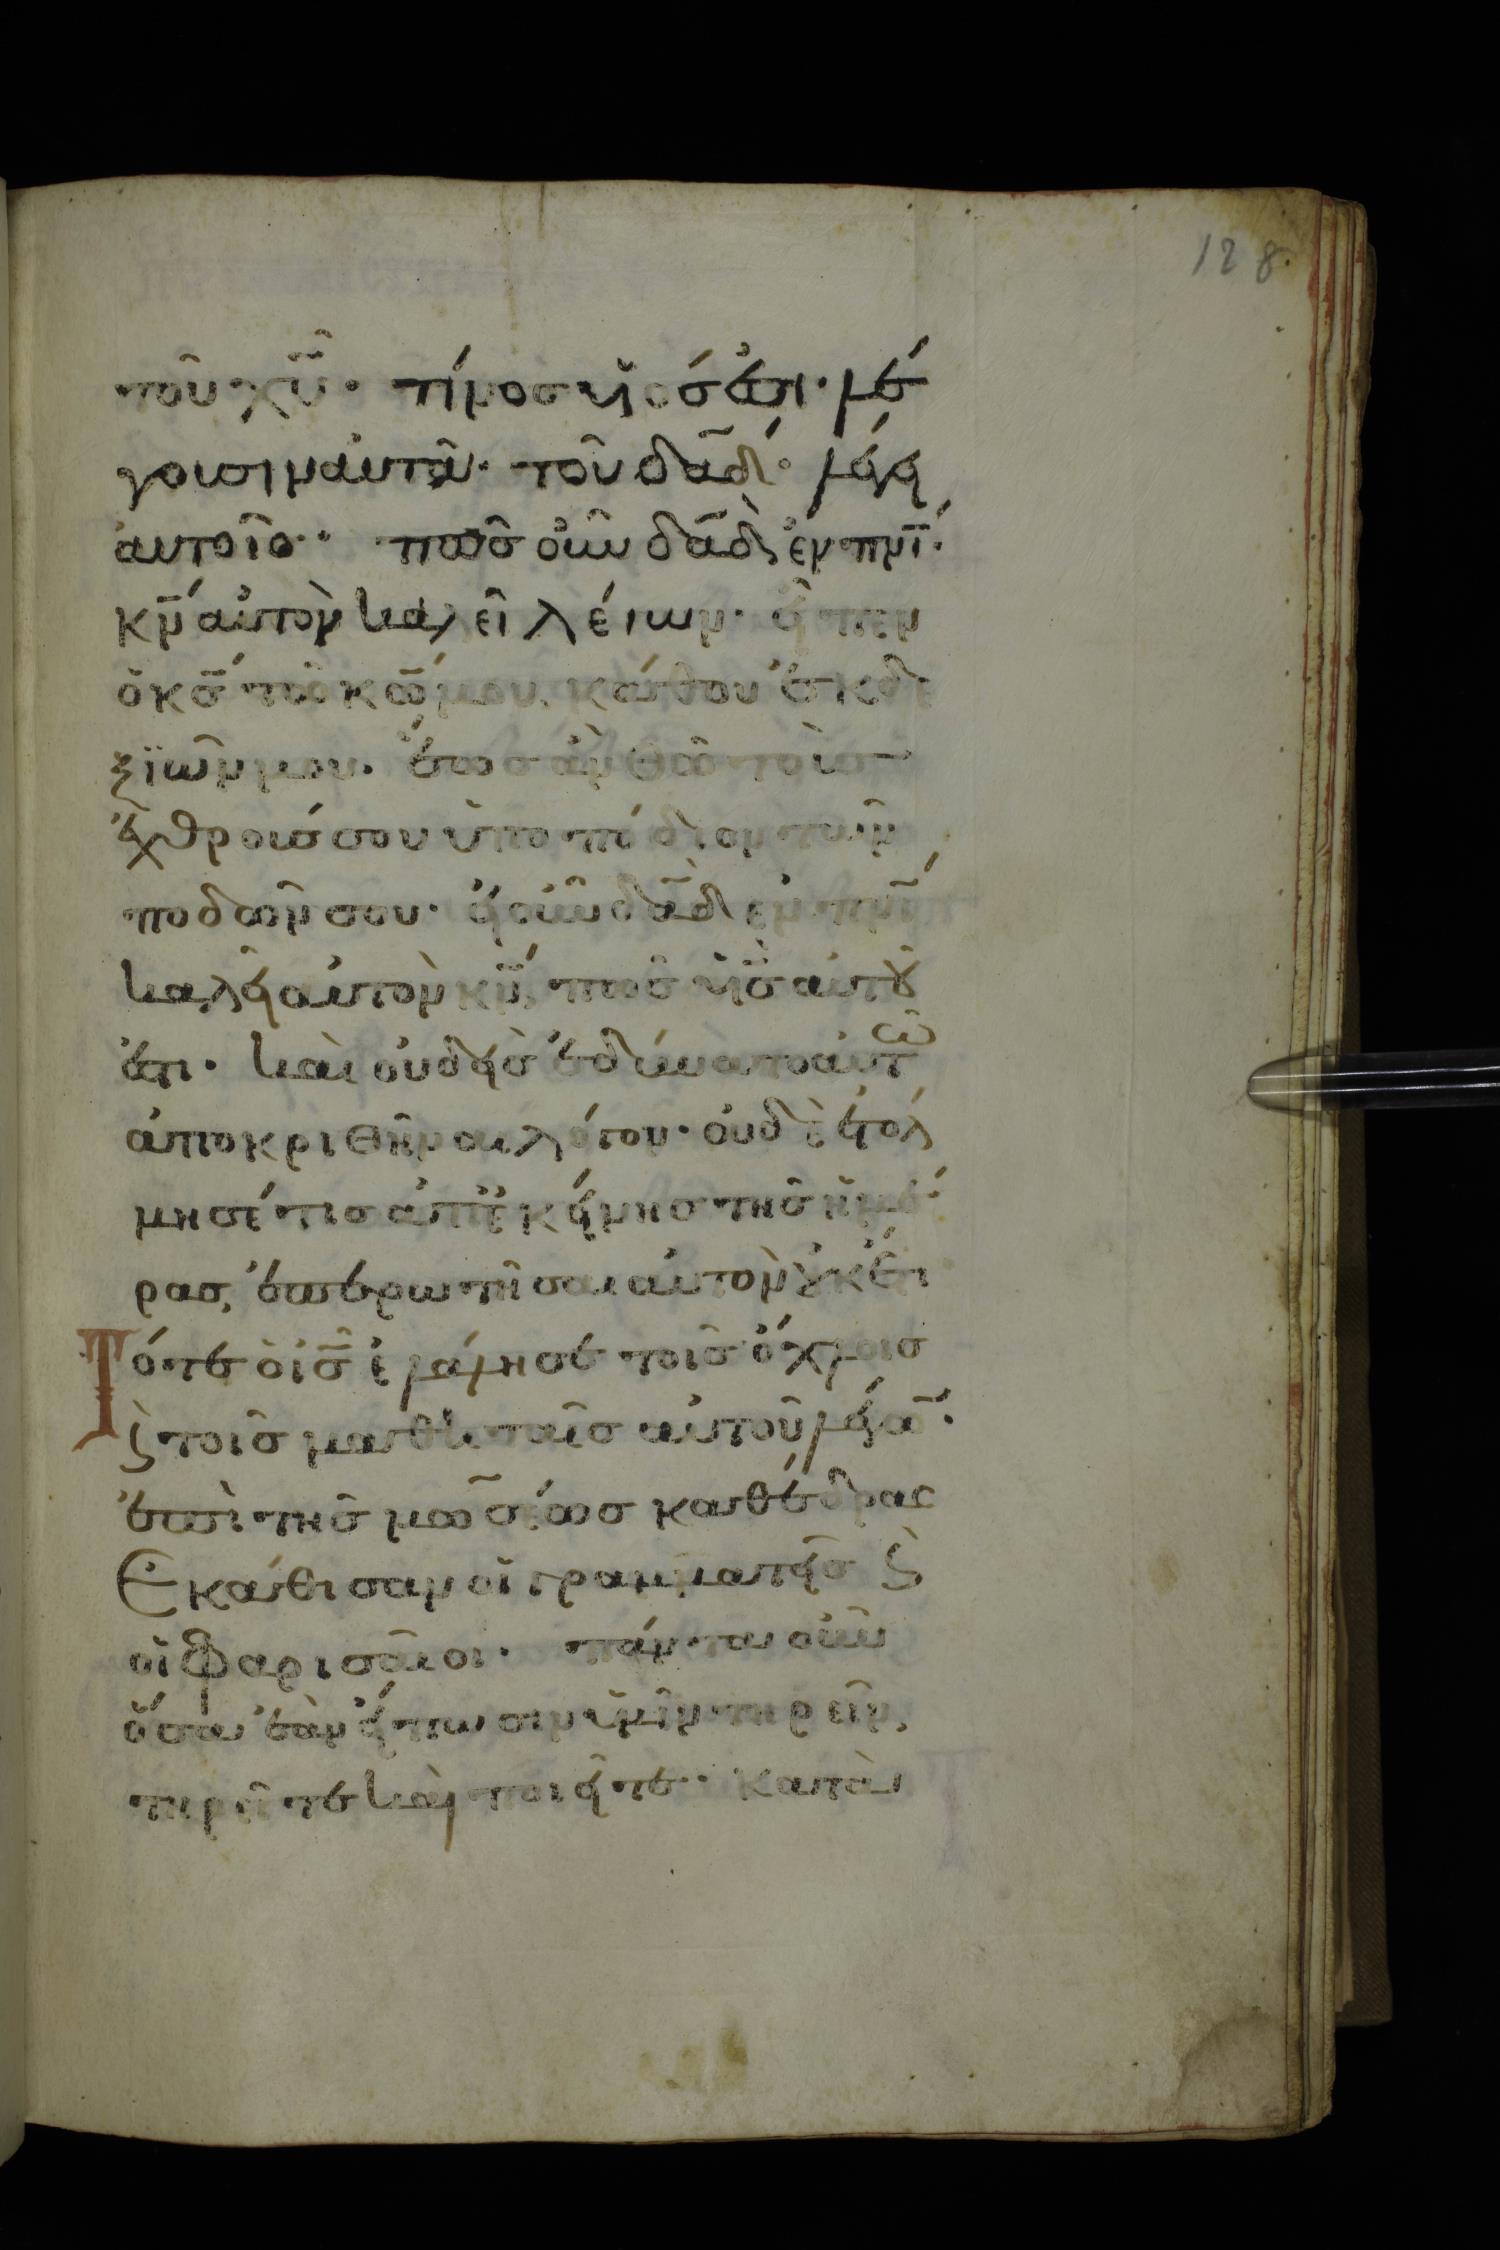 128
τοῦ χυ̅· τίνος υἱός ἐστι· λέ
γουσιν αὐτῶ· τοῦ δα̅δ· λέγει
αὐτοῖς· πῶς οὖν δα̅δ ἐν πνι̅
κν̅ αὐτὸν καλεῖ λέγων· εἶπεν
ὁ κσ̅ τῶ κω̅ μου, κάθου ἐκ δε
ξϊῶν μου· ἕως ἂν θῶ τοὺς
ἐχθρούς σου ὑποπόδιον τῶν
ποδῶν σου· εἰ οὖν δα̅δ ἐν πνι̅
καλεῖ αὐτὸν κν̅, πῶς υἱσ̅ αὐτοῦ
ἐστι· καὶ οὐδεὶς ἐδύνατο αὐτῶ
ἀποκριθῆναι λόγον· οὐδὲ ἐτόλ
μησέ τις ἀπ ἐκείνης τῆς ἡμέ
ρας, ἐπερωτῆσαι αὐτὸν οὐκέτι
Τότε ὁ ισ̅ ἐλάλησε τοῖς ὄχλοις
ϛ τοῖς μαθηταῖς αὐτοῦ λέγω̅·
ἐπὶ τῆς μω̅σέως καθέδρας
Ἐκάθισαν οἱ γραμματεῖς ϛ
οἱ φαρισαῖοι· πάντα οὖν
ὅσα ἐὰν εἴπωσιν ὑμῖν τηρεῖν,
τηρεῖτε καὶ ποιεῖτε· κατὰ